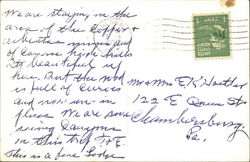 We are staying in the
area of the Copper &
asbestos mines and
of Canyon high hills
Its beautiful up
here. But the road
is full of curves
and in
places We are
seeing Canyons
in this
This is a fine Lodge
Mr & Mrs E K
122 E Queen St
Chambersburg
Pa.